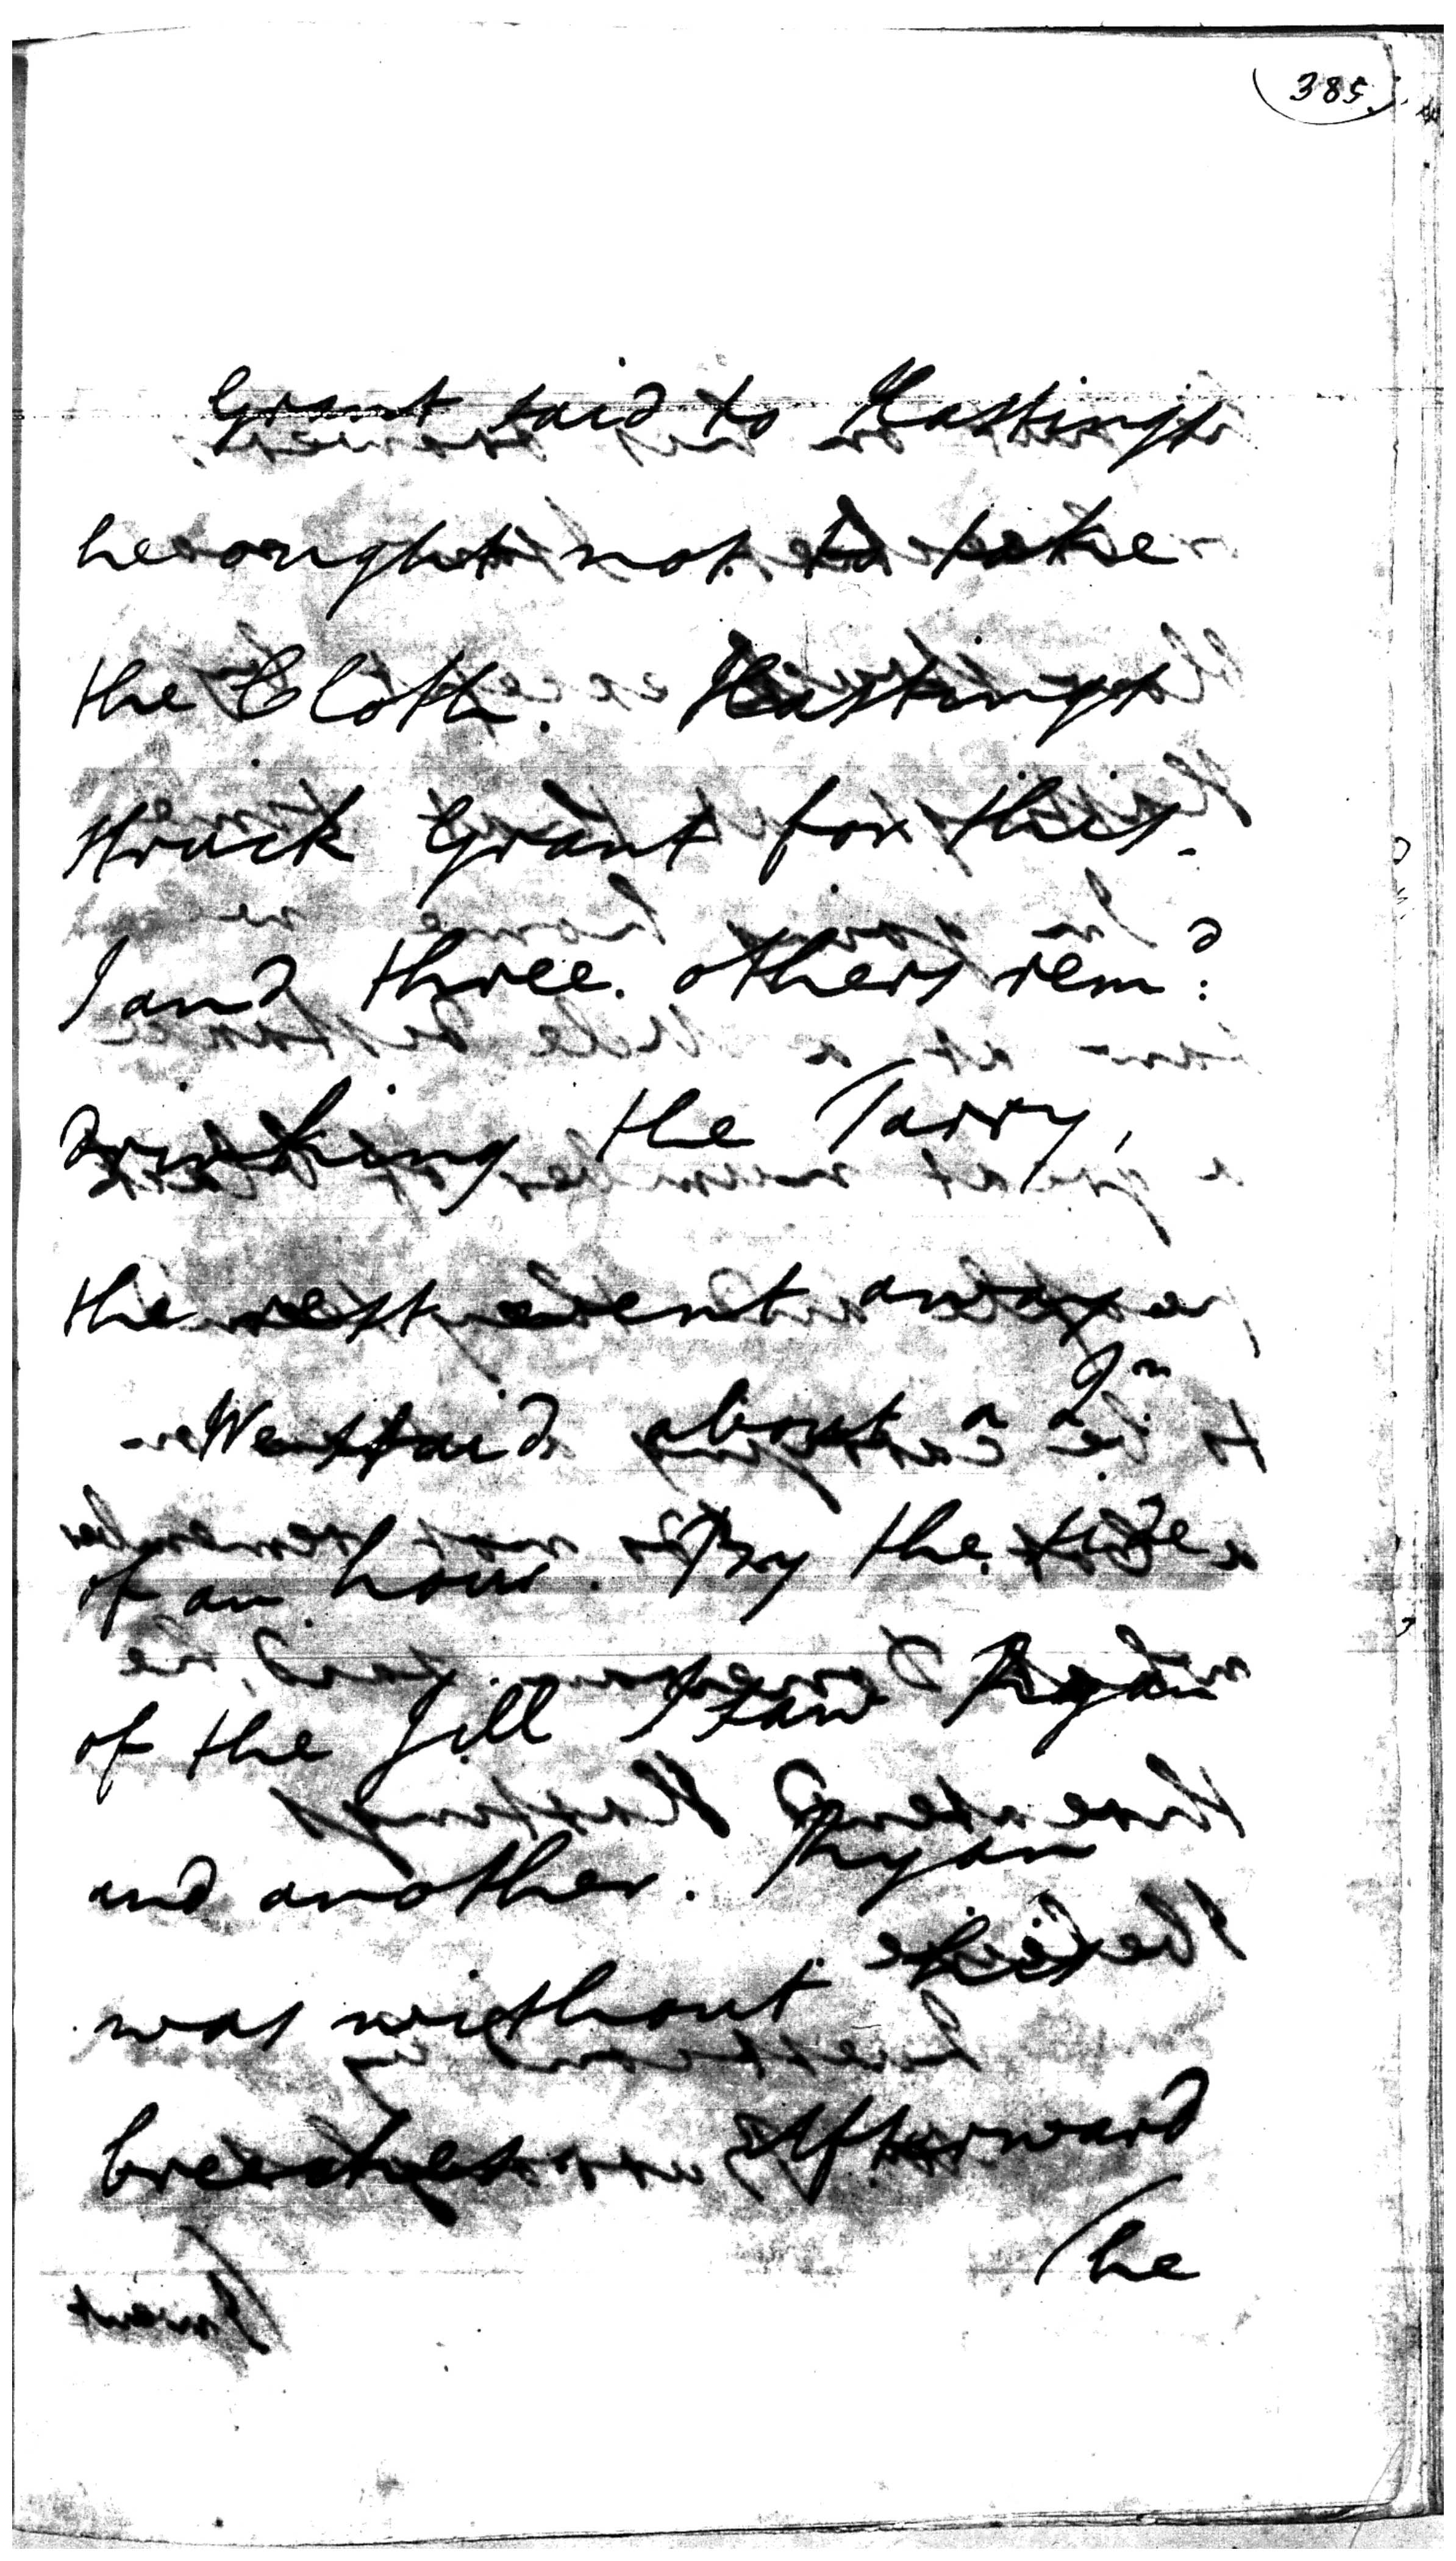 385
Grant said to Hastings
he ought not to take
the Cloth. Hastings
struck Grant for this.
I and three others rem:d
drinking the Tarry,
the rest went away
We staid about a Qr
of an hour. By the side
of the Jill I saw Ryan
and another. Ryan
was without
breeches. Afterward
The